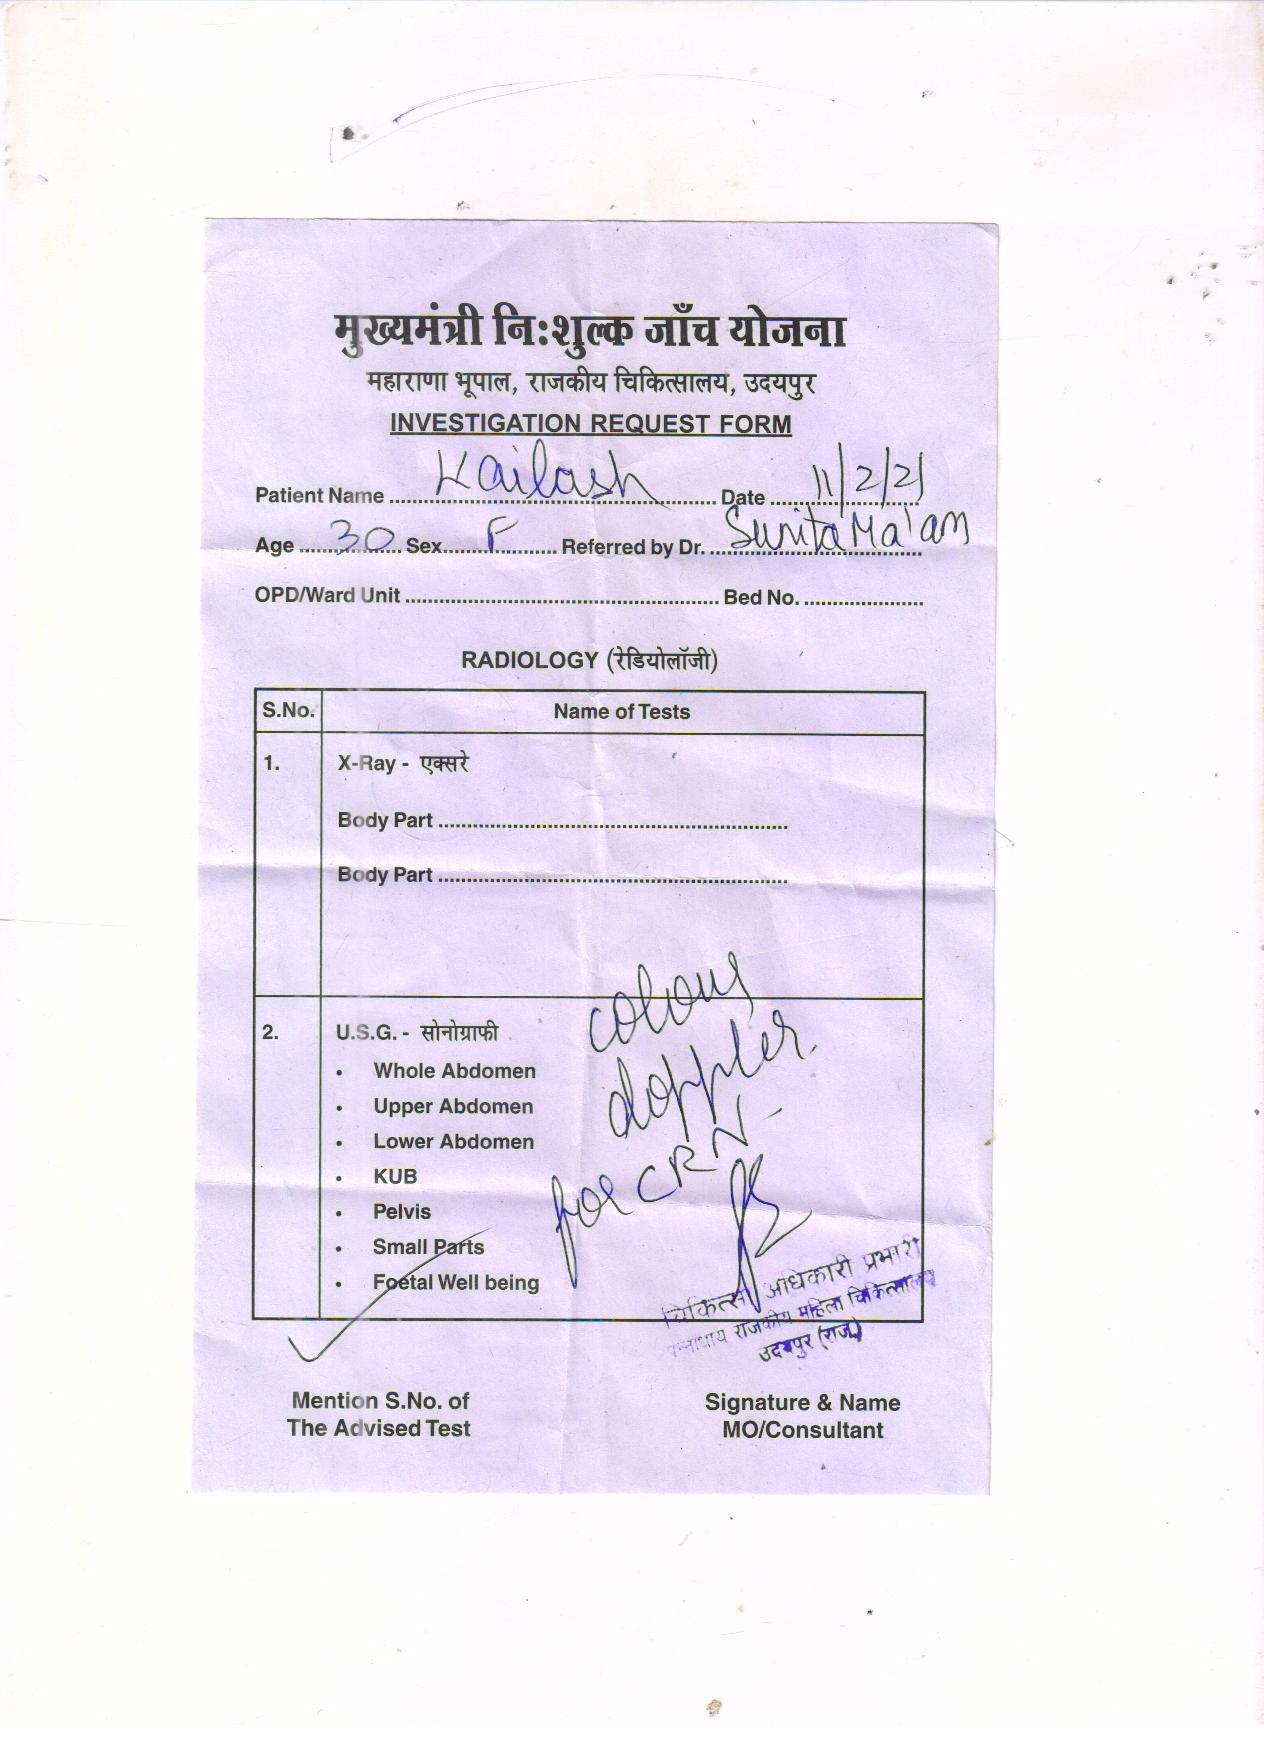 मुख्यमंत्री निःशुल्क जाँच योजना
महाराणा भूपाल, राजकीय चिकित्सालय, उदयपुर
INVESTIGATION REQUEST FORM
Patient Name ........ Kailash ........ Date ........ 11/2/21
Age ........ 30 Sex ........ F ........ Referred by Dr. ........ Sunita Ma'am
OPD/Ward Unit ........ Bed No. ........
RADIOLOGY (रेडियोलॉजी)
S.No. Name of Tests
1. X-Ray - एक्सरे
Body Part ........
Body Part ........
2. U.S.G. - सोनोग्राफी
• Whole Abdomen
• Upper Abdomen
• Lower Abdomen
• KUB
• Pelvis
• Small Parts
• Foetal Well being
colour
doppler.
for CRN
चिकित्सा अधिकारी प्रभारी
राजकीय महिला चिकित्सालय
उदयपुर (राज.)
Mention S.No. of
The Advised Test
Signature & Name
MO/Consultant